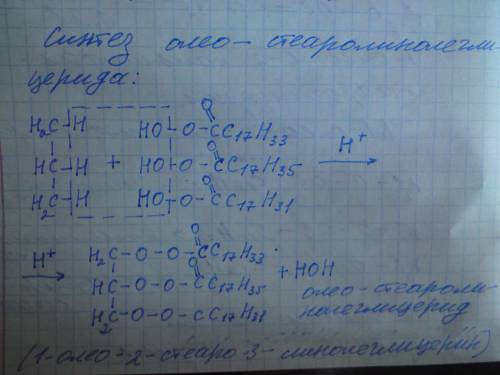 Синтез олео-стеаролинолегли-
церида:
H₂C-|H HO|-O-C(=O)C₁₇H₃₃
HC-|H + HO|-O-C(=O)C₁₇H₃₅ H⁺→
H₂C-|H HO|-O-C(=O)C₁₇H₃₁
H⁺→ H₂C-O-O-C(=O)C₁₇H₃₃
HC-O-O-C(=O)C₁₇H₃₅ + HOH
H₂C-O-O-CC₁₇H₃₁
олео-стеароли-
нолеглицерид
(1-олео-2-стеаро-3-линолеглицерин)